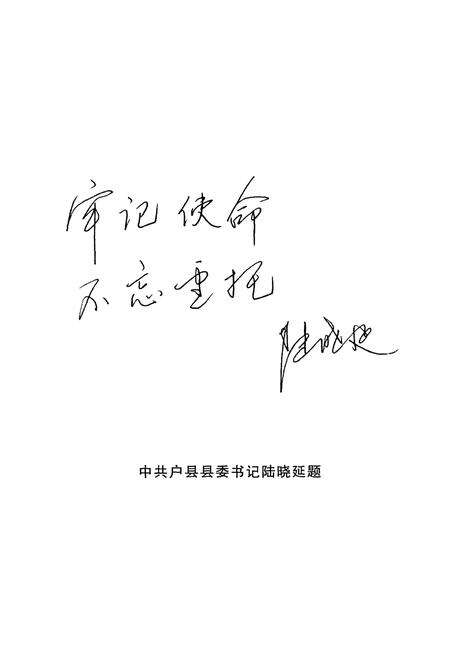 牢记使命
不忘重托
陆晓延
中共户县县委书记陆晓延题